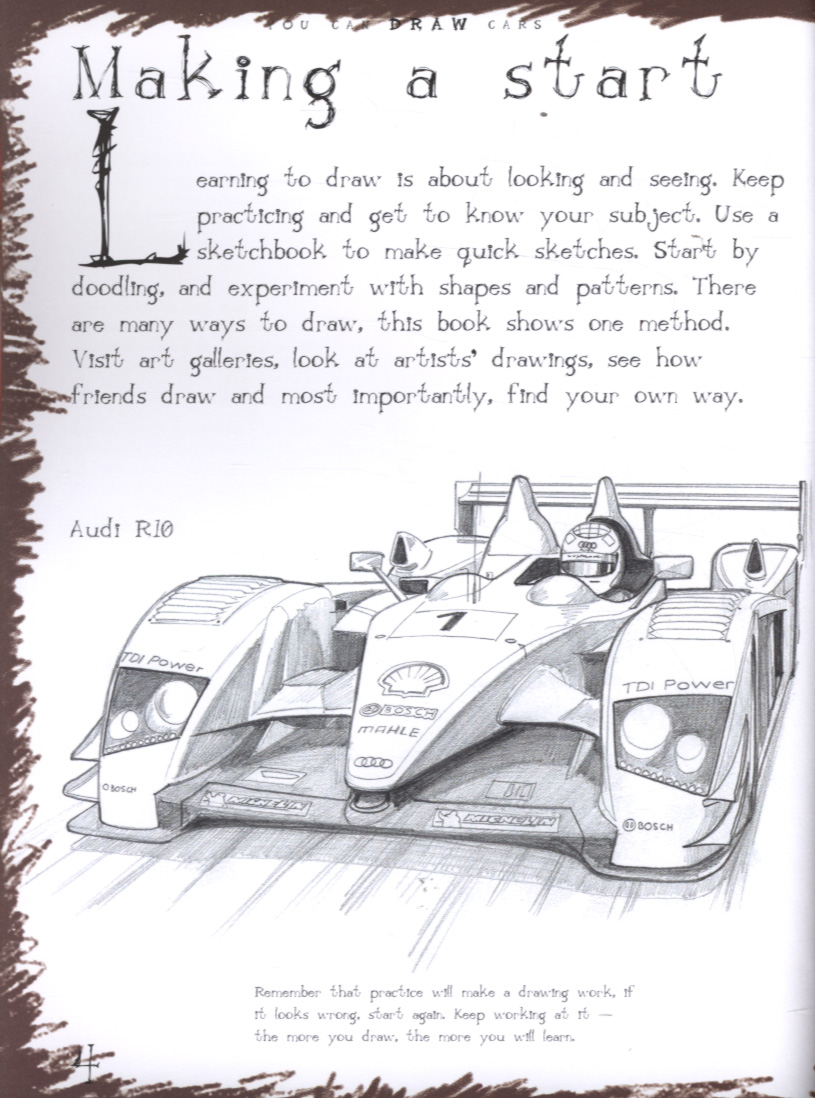 YOU CAN DRAW CARS
Making a start
Learning to draw is about looking and seeing. Keep
practicing and get to know your subject. Use a
sketchbook to make quick sketches. Start by
doodling, and experiment with shapes and patterns. There
are many ways to draw, this book shows one method.
Visit art galleries, look at artists' drawings, see how
friends draw and most importantly, find your own way.
Audi R10
1
TDI Power
TDI Power
BOSCH
MAHLE
BOSCH
MICHELIN
MICHELIN
BOSCH
Remember that practice will make a drawing work, if
it looks wrong, start again. Keep working at it —
the more you draw, the more you will learn.
4